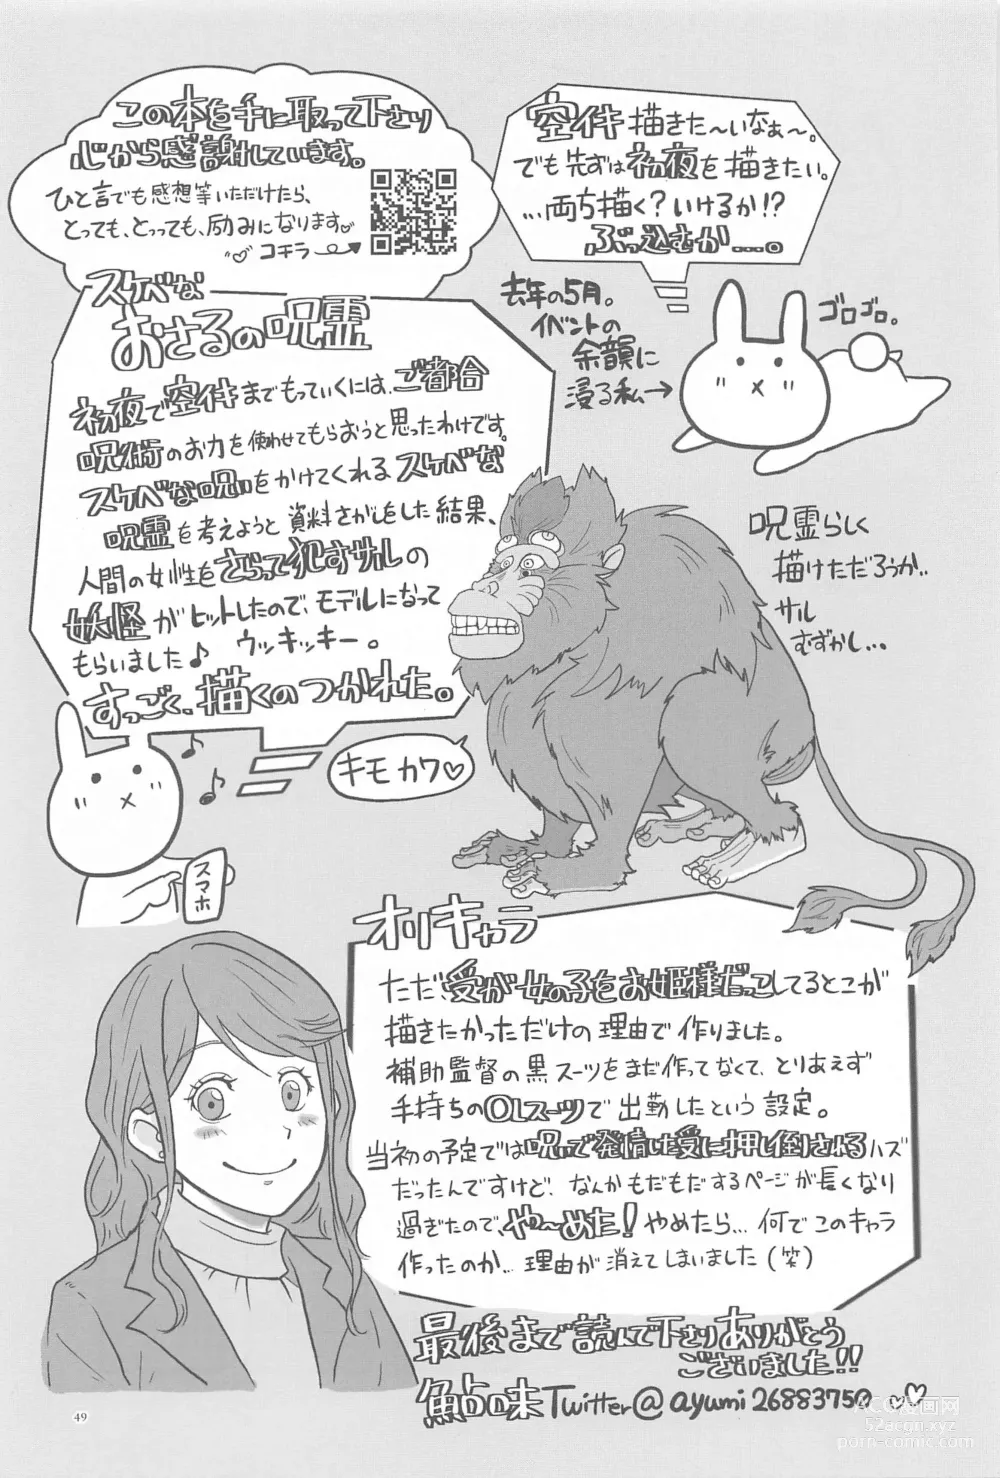 この本を手に取って下さり
心から感謝しています。
ひと言でも感想等いただけたら、
とっても、とっっても、励みになります♡
コチラ→
空イキ描きた〜いなぁ〜。
でも先ずは初夜を描きたい。
...両方描く？いけるか!?
ぶっ込むか……。
去年の5月。
イベントの
余韻に
浸る私→
ゴロゴロ。
スケベな
おさるの呪霊
初夜で空イキまでもっていくには、ご都合
呪術のお力を使わせてもらおうと思ったわけです。
スケベな呪いをかけてくれるスケベな
呪霊を考えようと資料さがしをした結果、
人間の女性をさらって犯すサルの
妖怪がヒットしたので、モデルになって
もらいました♪ ウッキッキー。
すっごく、描くのつかれた。
呪霊らしく
描けただろうか..
サル
むずかし...
キモカワ♡
スマホ
オリキャラ
ただ、受が女の子をお姫様だっこしてるとこが
描きたかっただけの理由で作りました。
補助監督の黒スーツをまだ作ってなくて、とりあえず
手持ちのOLスーツで出勤したという設定。
当初の予定では呪いで発情した受に押し倒されるハズ
だったんですけど、なんかもだもだするページが長くなり
過ぎたので、や〜めた！やめたら...何でこのキャラ
作ったのか...理由が消えてしまいました(笑)
最後まで読んで下さりありがとう
ございました!!
鮎味 Twitter@ayumi26883750 ♡♥
49
ACG漫画网
52acgn.xyz
porn-comic.com